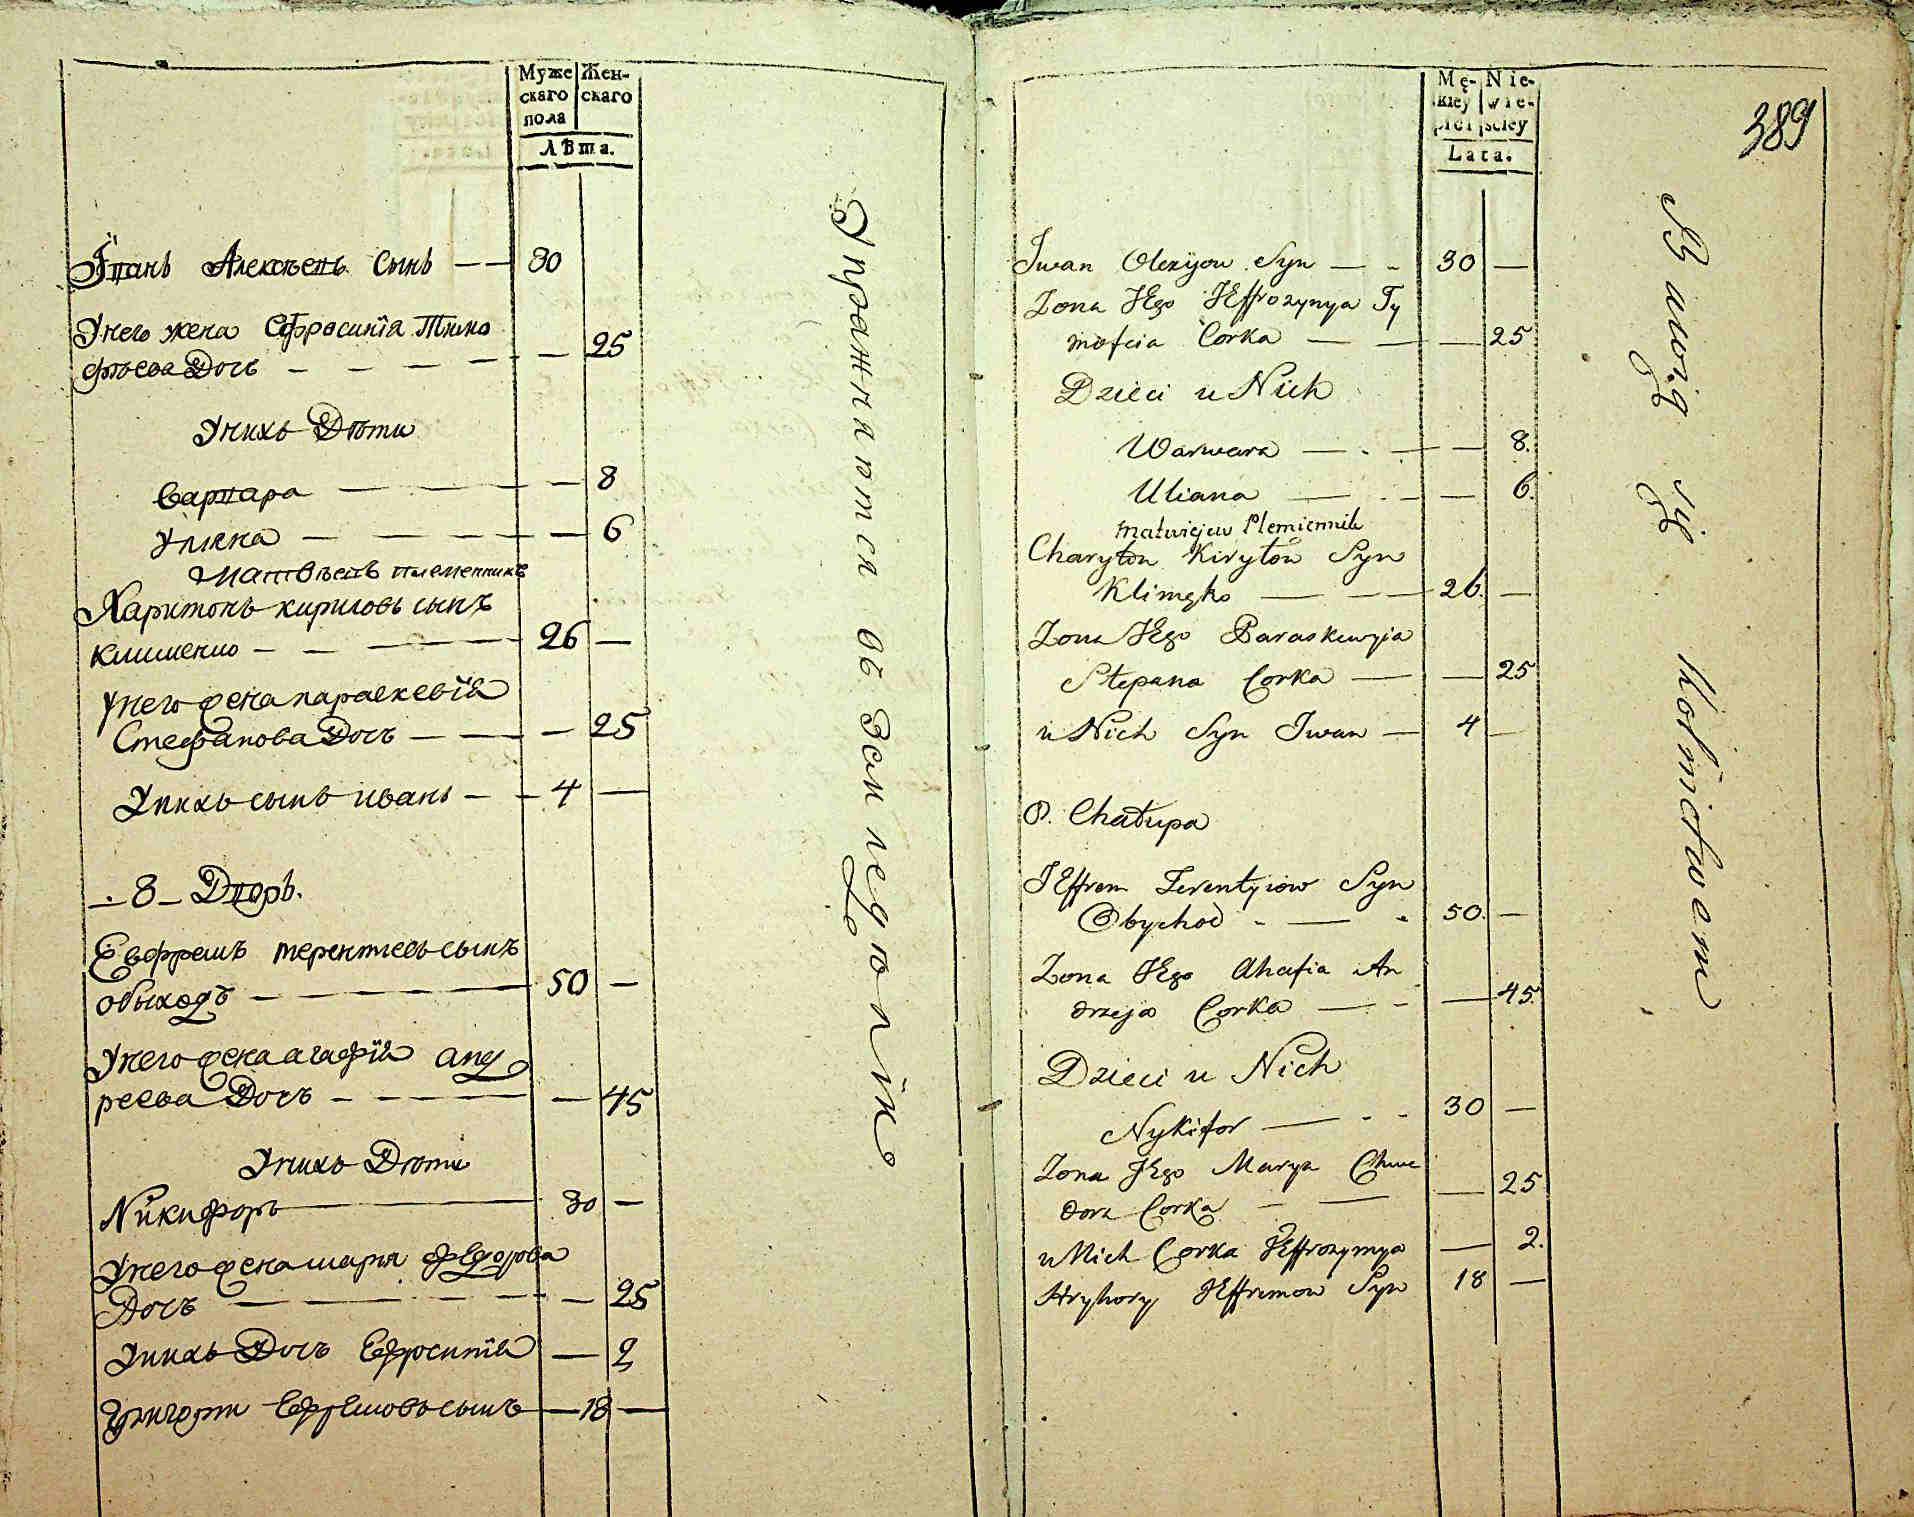 Муже Жен-
скаго скаго
пола
Лѣта.
Иванъ Алексѣевъ сынъ — — 30
Унего жена Ефросинїя Тимо
фѣева Дочь — — — — — 25
Унихъ Дѣти
Варвара — — — — 8
Улияна — — — — — 6
Матвѣевъ племенникъ
Харитонъ кириловъ сынъ
клименко — — — 26 —
унего жена параскевїя
Стефанова Дочь — — — 25
Унихъ сынъ иванъ — — 4 —
— 8 — Дворъ.
Евфремъ терентиевъ сынъ
обыходъ — — — — 50 —
Унего жена агафїя анд
реева Дочь — — — — — 45
Унихъ Дѣти
Никифоръ — 30 —
Унего жена марья федорова
Дочь — — — — — 25
Унихъ Дочь Ефросинїя — 2
Григори Ефремовъ сынъ — 18 —
Упражняются въ Земледюлїи
389
Mę- Nie-
kiey wie-
płci ściey
Lata.
Iwan Olexijow Syn — - 30 —
Zona JEgo JEffrozynya Ty
mofeia Corka — — — 25
Dzieci u Nich
Warwara — . — — 8.
Uliana — . - — 6.
Matwiejew Plemiennik
Charyton Kiryłow Syn
Klimęko — — — 26. —
Zona JEgo Paraskewyia
Stepana Corka — — 25
u Nich Syn Iwan — 4 —
8. Chałupa
JEffrem Terentyiow Syn
Obychod - — - 50. —
Zona JEgo Ahafia An
drzeja Corka — - - — 45.
Dzieci u Nich
Nykifor — - - 30 —
Zona JEgo Marya Chwe
dora Corka - — — 25
u Nich Corka JEffrozynya — 2.
Hryhory JEffremow Syn 18 —
Bawią się Rolnictwem